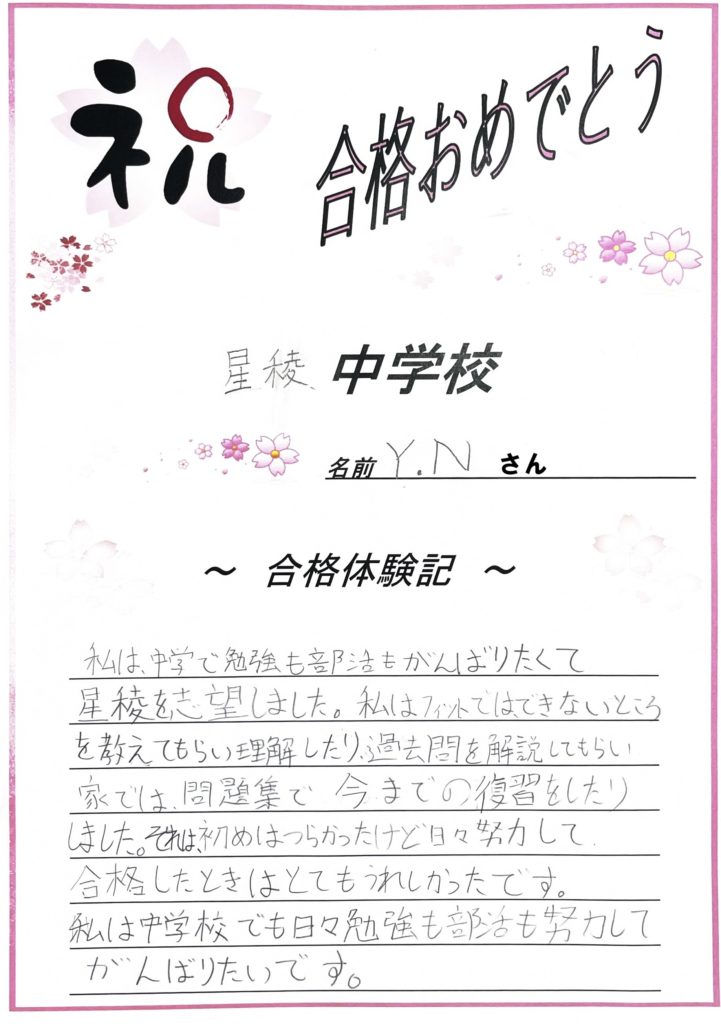 祝
合格おめでとう
星稜 中学校
名前 Y.N さん
～ 合格体験記 ～
私は、中学で勉強も部活もがんばりたくて
星稜を志望しました。私はフィットではできないところ
を教えてもらい理解したり、過去問を解説してもらい
家では、問題集で今までの復習をしたり
しました。それは、初めはつらかったけど日々努力して
合格したときはとてもうれしかったです。
私は中学校でも日々勉強も部活も努力して
がんばりたいです。